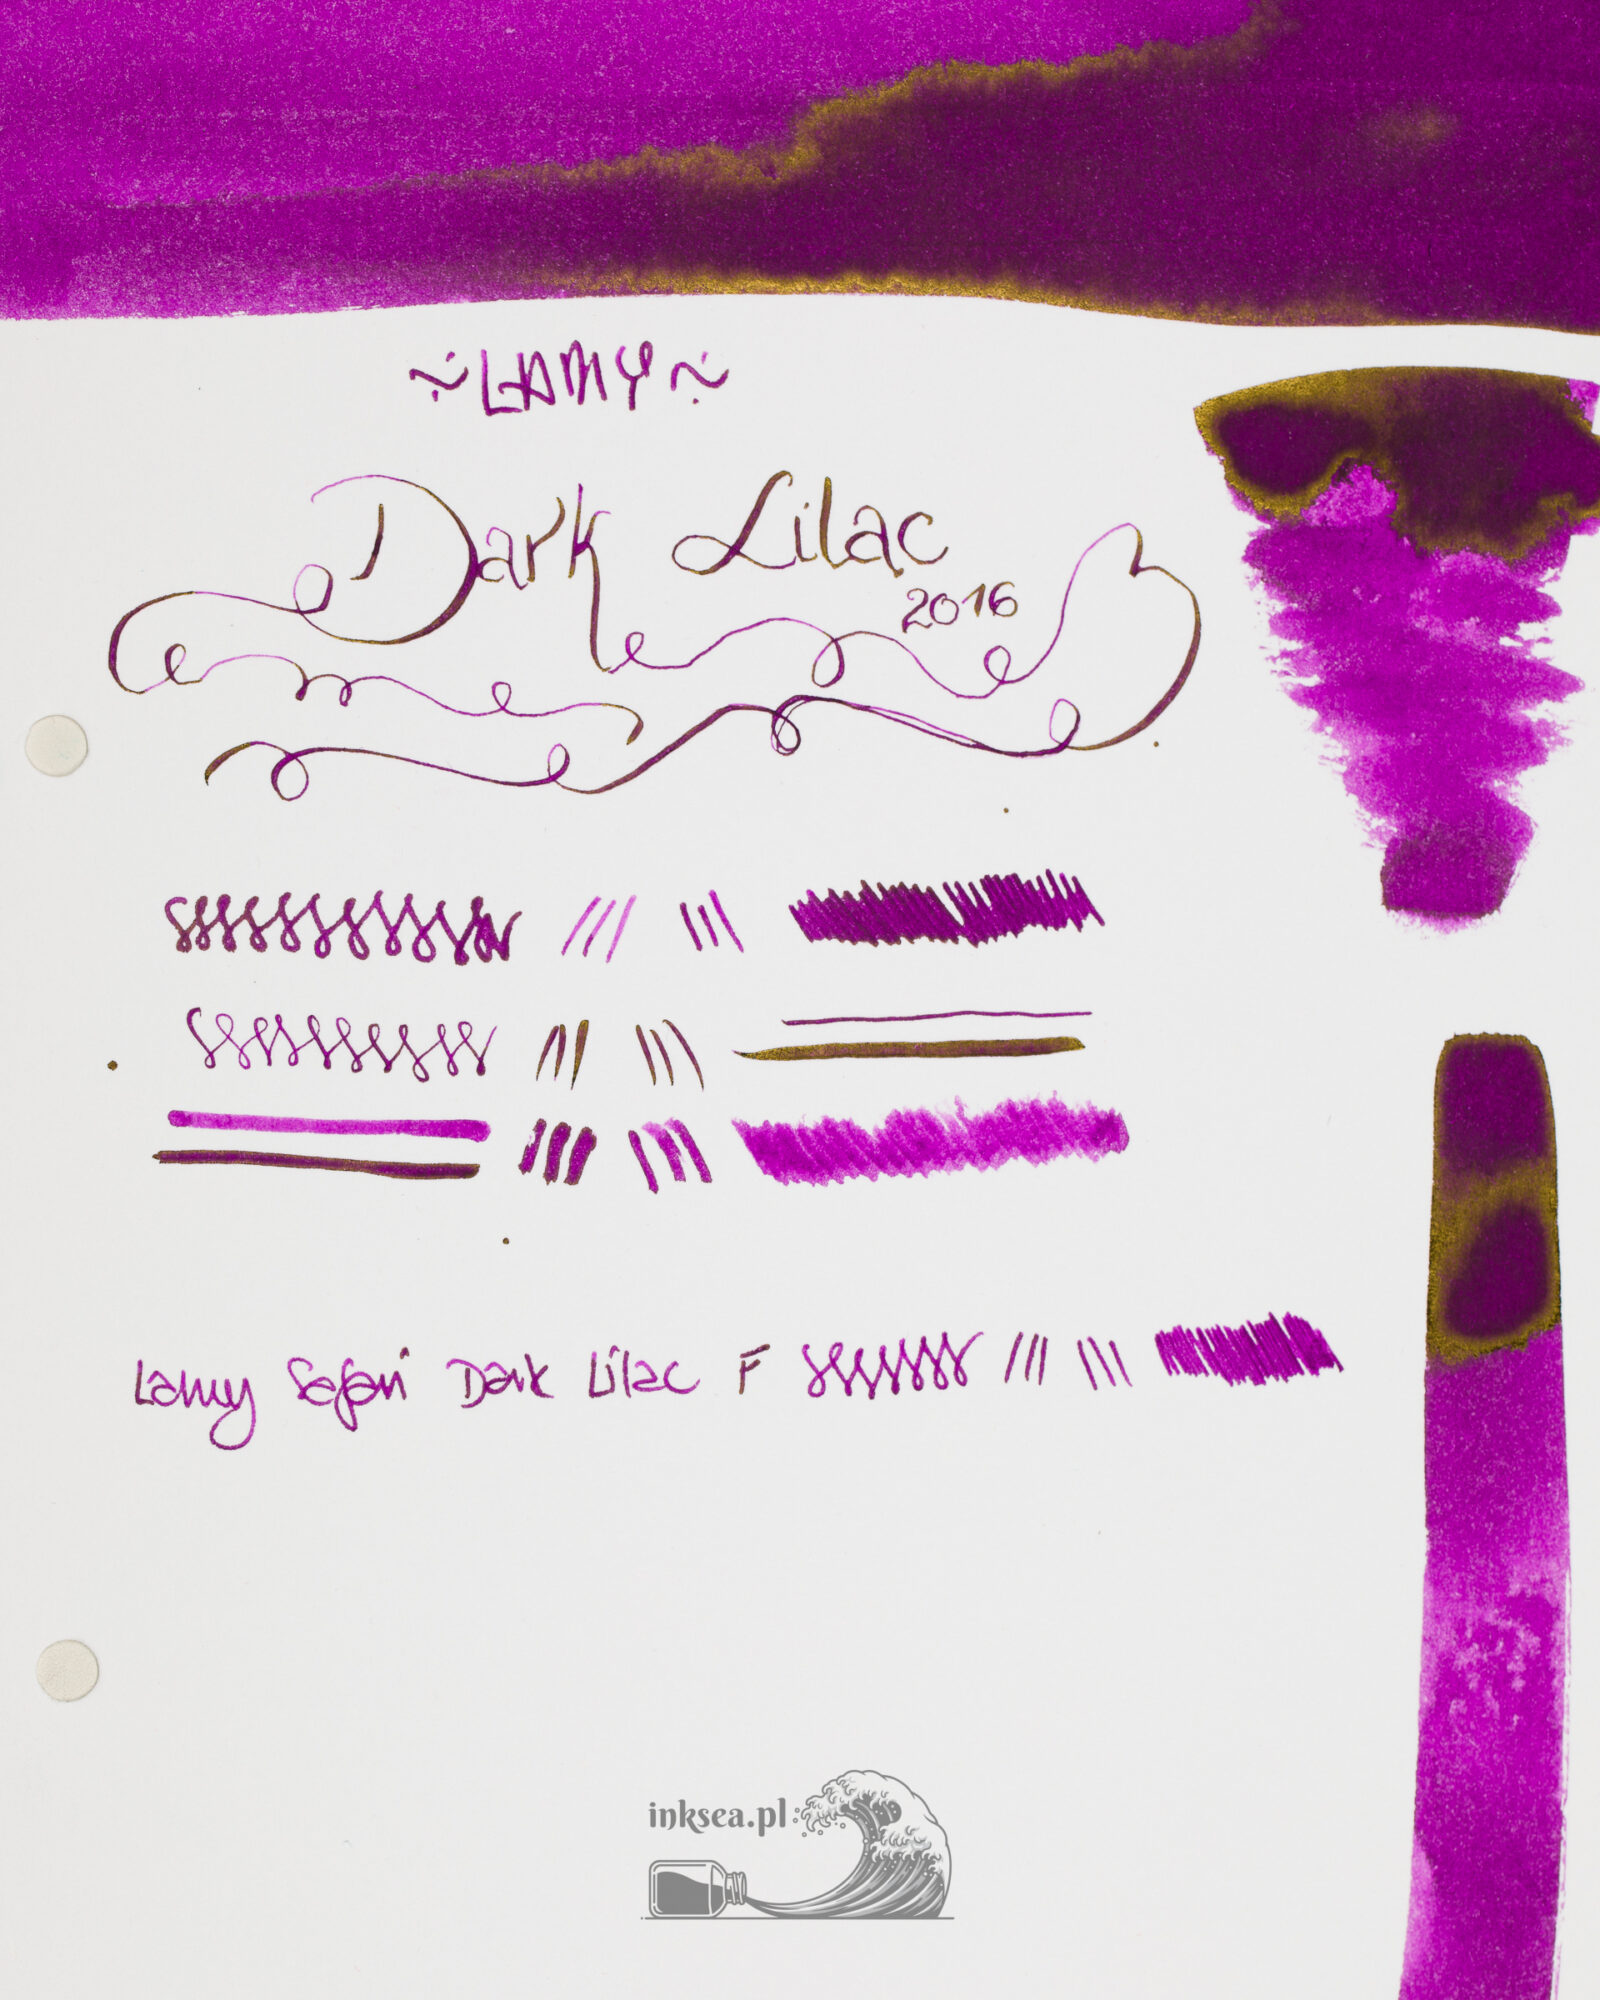 ~LAMY~
Dark Lilac
2016
Lamy Safari Dark Lilac F
inksea.pl